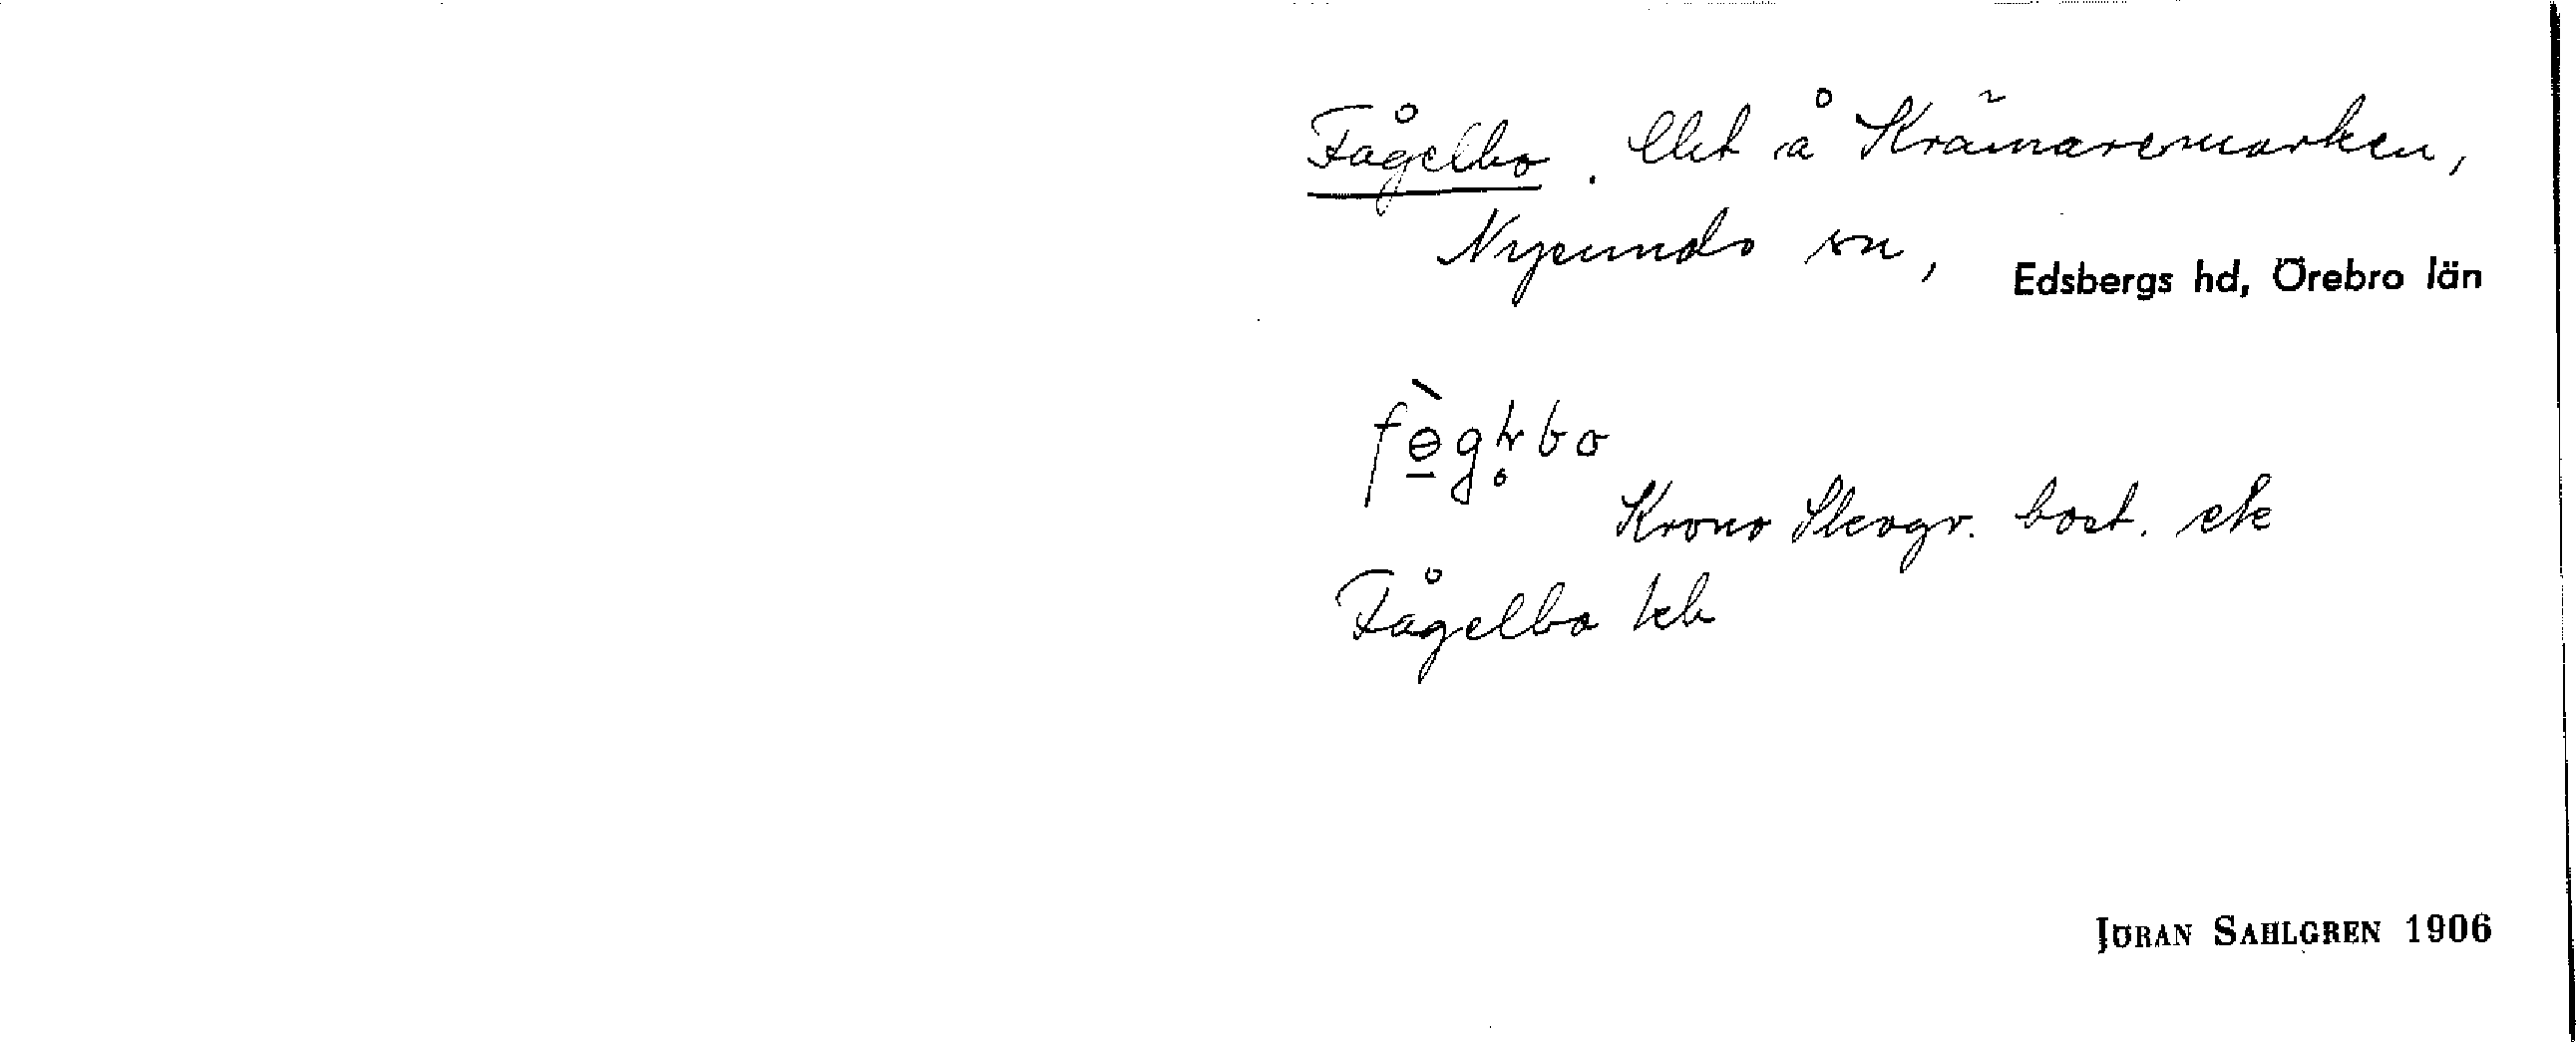 Fågelbo. Lht å Krämaremarken,
Nysunds sn, Edsbergs hd, Örebro län
fo̠gɫ̥bo
Krono Skogv. bost. ek
Fågelbo kb
JÖRAN SAHLGREN 1906